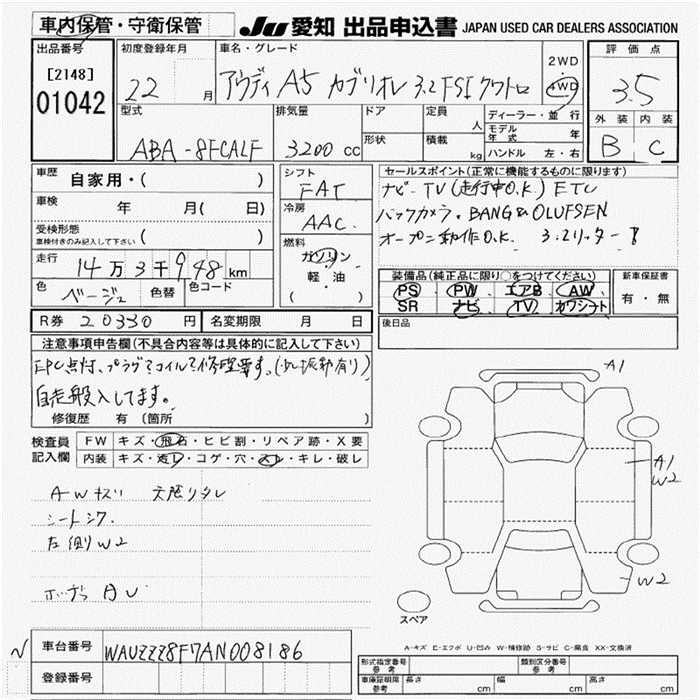 車内保管・守衛保管
JU 愛知 出品申込書 JAPAN USED CAR DEALERS ASSOCIATION
出品番号
[2148]
01042
初度登録年月
22 月
車名・グレード
アウディ A5 カブリオレ 3.2FSI クワトロ
2WD
4WD
評価点
3.5
外装 内装
B C
型式
ABA-8FCALF
排気量
3200 cc
ドア
形状
定員 人
積載 kg
ディーラー・並行
モデル年式 年
ハンドル 左・右
車歴
自家用・( )
車検 年 月( 日)
受検形態
車検付きのみ記入して下さい ( )
走行 14万3千948km
色 ベージュ 色替 色コード
シフト
FAT
冷房
AAC
燃料
ガソリン
軽・油
( )
セールスポイント(正常に機能するものに限ります)
ナビ・TV(走行中O.K.) ETC
バックカメラ. BANG& OLUFSEN
オープン動作O.K. 3.2リッター
装備品(純正品に限り○をつけてください)
PS PW エアB AW
SR ナビ TV カワシート
新車保証書
有・無
後日品
R券 20330円 名変期限 月 日
注意事項申告欄(不具合内容等は具体的に記入して下さい)
EPC点灯、プラグ・コイル修理要す。
自走搬入してます。
修復歴 有(箇所 )
検査員記入欄
FW キズ・飛石・ヒビ割・リペア跡・X要
内装 キズ・汚レ・コゲ・穴・スレ・キレ・破レ
AWキズ 天張りタレ
シートシワ
左側W2
A1
A1
W2
W2
スペア
A-キズ E-エクボ U-凹み W-補修跡 S-サビ C-腐食 XX-交換済
車台番号 WAUZZZ8F7AN008186
登録番号
形式指定番号 参考
類別区分番号 参考
車庫証明期 参考 長さ cm 幅 cm 高さ cm